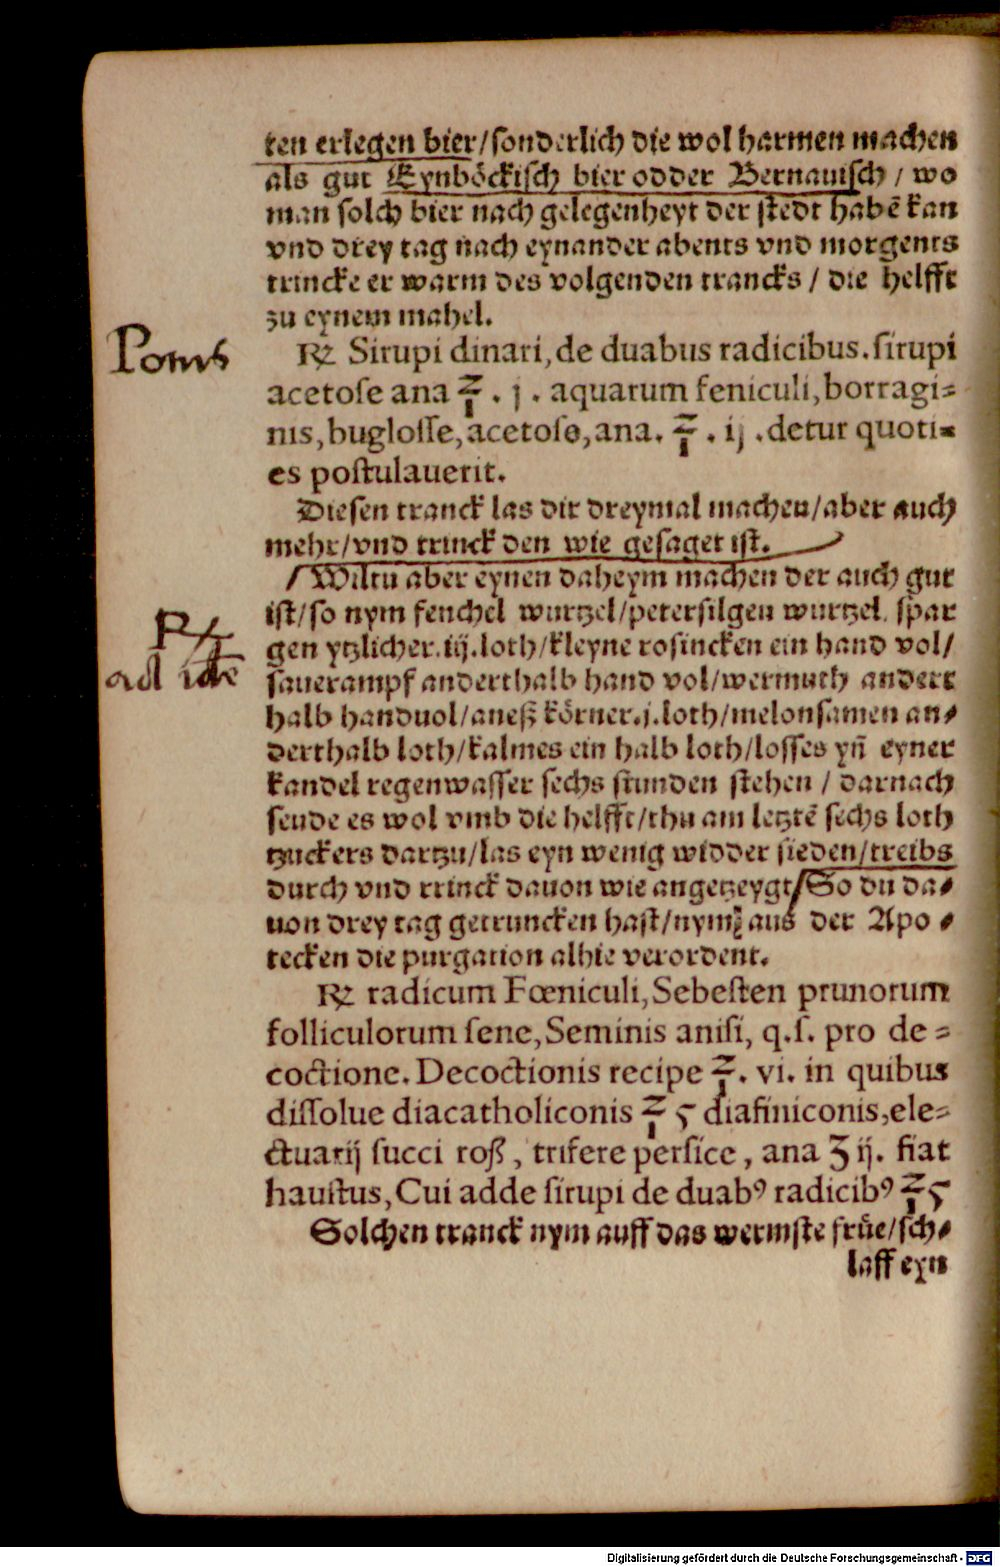 ten erlegen bier/sonderlich die wol harmen machen
als gut Eynböckisch bier odder Bernauisch / wo
man solch bier nach gelegenheyt der stedt habē kan
vnd drey tag nach eynander abents vnd morgents
trincke er warm des volgenden trancks / die helfft
zu eynem mahel.
Potus
℞ Sirupi dinari, de duabus radicibus. sirupi
acetose ana ℥ . j . aquarum feniculi, borragi⸗
nis, buglosse, acetose, ana. ℥ . ij .detur quoti⸗
es postulauerit.
Diesen tranck las dir dreymal machen/aber auch
mehr/vnd trinck den wie gesaget ist.
Wiltu aber eynen daheym machen der auch gut
ist/so nym fenchel wurtzel/petersilgen wurtzel. spar
℞
gen ytzlicher. iij. loth/kleyne rosincken ein hand vol/
ad idē
sauerampf anderthalb hand vol/wermuth andert
halb handuol/aneß körner. j. loth/melonsamen an⸗
derthalb loth/kalmes ein halb loth/losses yn̄ eyner
kandel regenwasser sechs stunden stehen / darnach
seude es wol vmb die helfft/thu am letztē sechs loth
tzuckers dartzu/las eyn wenig widder sieden/treibs
durch vnd trinck dauon wie angetzeygt/So du da⸗
uon drey tag getruncken hast/nym aus der Apo ⸗
tecken die purgation alhie verordent.
℞ radicum Fœniculi, Sebesten prunorum
folliculorum sene, Seminis anisi, q.s. pro de ⸗
coctione. Decoctionis recipe ℥. vi. in quibus
dissolue diacatholiconis ℥ ϛ diafiniconis, ele⸗
ctuarij succi roß , trifere persice , ana ʒ ij. fiat
haustus, Cui adde sirupi de duabꝰ radicibꝰ ℥ ϛ
Solchen tranck nym auff das wermste früe/sch⸗
laff eyn
Digitalisierung gefördert durch die Deutsche Forschungsgemeinschaft - DFG